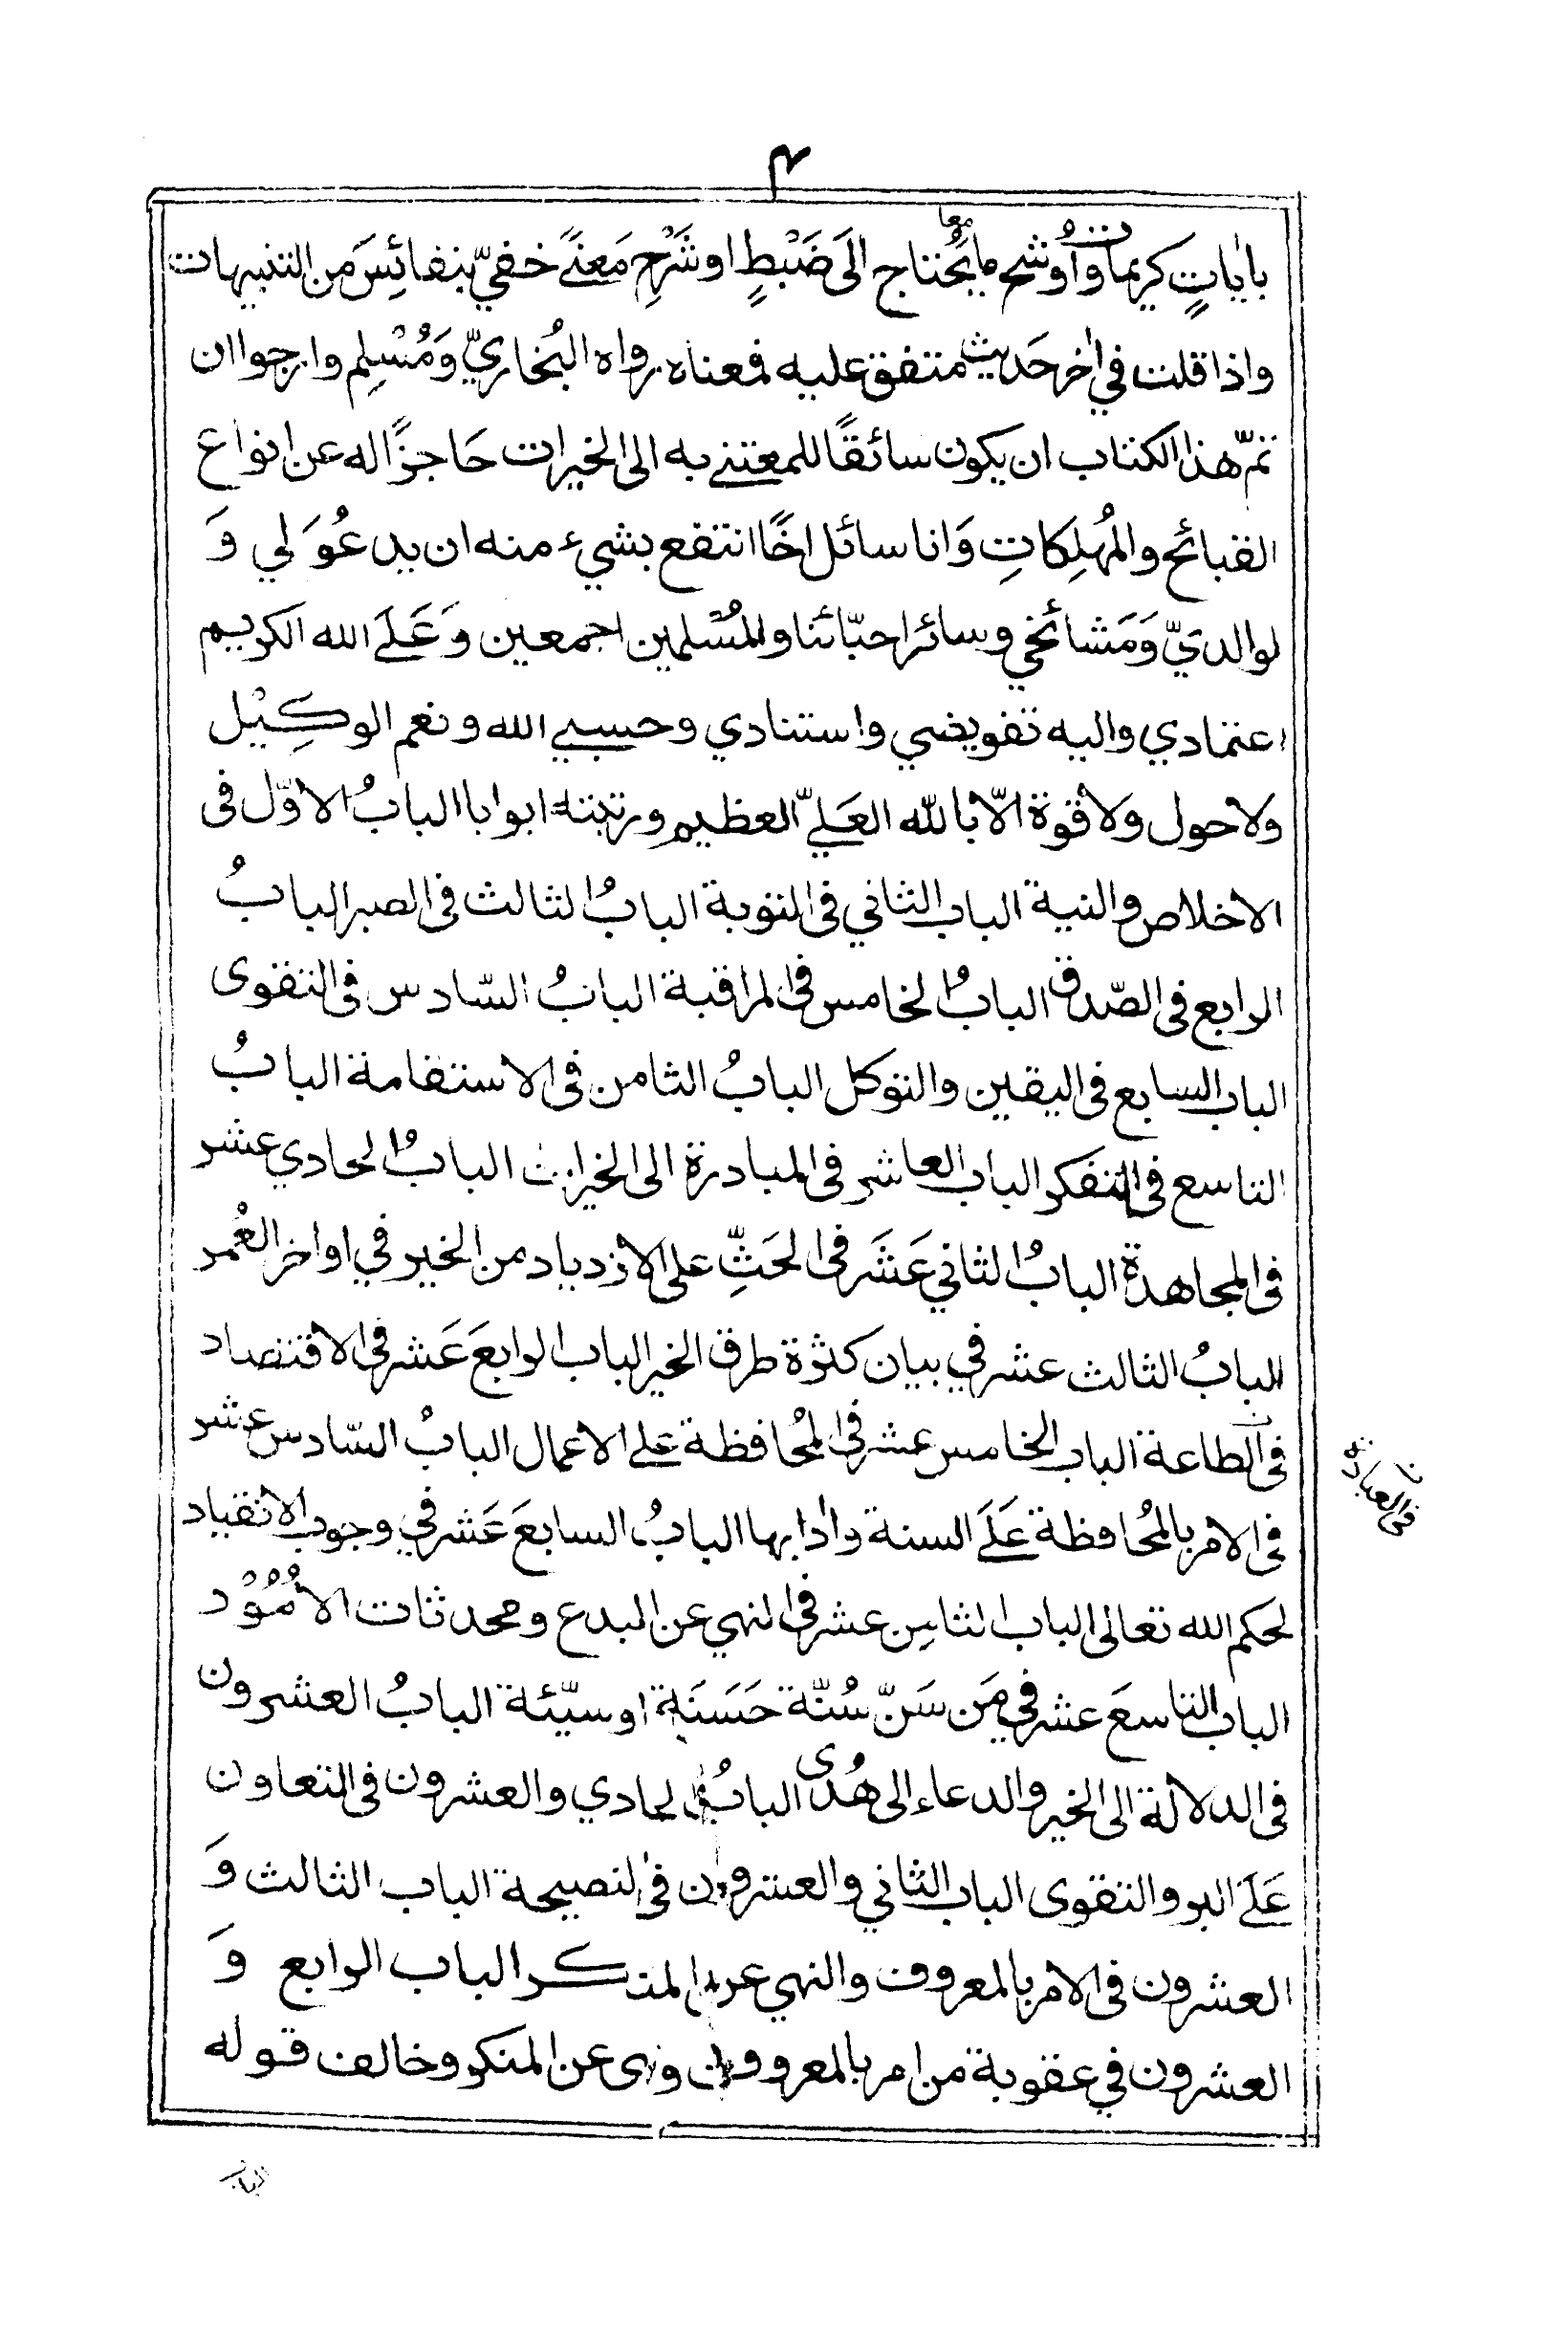 ۴
باٰياتٍ كريمات وَاُوشح ما يَحُتاج الَى ضَبْطٍ او شَرْحِ مَعنًے خفيّ بنفائِسَ من التنبيهات
معا
واذا قلت في اٰخر حَديث متفق عليه فمعناه رواه البُخاريّ وَمُسْلِم وارجوا ان
تمّ هذا الكتاب ان يكون سائقًا للمعتنے به الى الخيرات حَاجزًا له عن انواع
القبائح والمُهلِكاتِ وَانا سائل اخًا انتفع بشيء منه ان يدعُوَ لي وَ
لوالديَّ وَمَشائخي وسائر احبّائنا والمُسْلمين اجمعين وَعَلَے الله الكريم
اعتمادي واليه تفويضي واستنادي وحسبے الله ونعم الوكِيْل
ولا حول ولا قوة الّا باللّٰه العَليّ العظيم ورتبته ابوابا البابُ الاوّل فى
الاخلاص والنية الباب الثاني فى التوبة البابُ الثالث فى الصبر البابُ
الرابع فى الصّدق البابُ الخامس فى المراقبة البابُ السّادس فى التقوى
الباب السابع فى اليقين والتوكل البابُ الثامن فى الاستقامة البابُ
التاسع فى التفكر الباب العاشر فى المبادرة الى الخيرات البابُ الحادي عشر
فى المجاهدة البابُ الثاني عَشَر فى الحَثِّ على الازدياد من الخير في اواخر العُمر
البابُ الثالث عشر في بيان كثرة طرق الخير الباب الرابعَ عَشر فى الاقتصاد
فى الطاعة الباب الخامس عشر فى المُحافظة علے الاعمال البابُ السّادس عشر
فى العبادة
فى الامر بالمُحافظة عَلَے السنة واٰدابها البابُ السابعَ عَشر في وجوب الانقياد
لحكم الله تعالى الباب الثامن عشر فى النهي عن البدع ومحدثات الاُمُوْر
الباب التاسعَ عشر في مَن سَنّ سُنّة حَسَنَة او سيّئة البابُ العشرون
فى الدلالة الى الخير والدعاء الى هُدًى البابُ الحادي والعشرون فى التعاون
عَلَے البر والتقوى الباب الثاني والعشرون فى النصيحة الباب الثالث وَ
العشرون فى الامر بالمعروف والنهي عن المنكر الباب الرابع وَ
العشرون في عقوبة من امر بالمعروف ونهى عن المنكر وخالف قوله